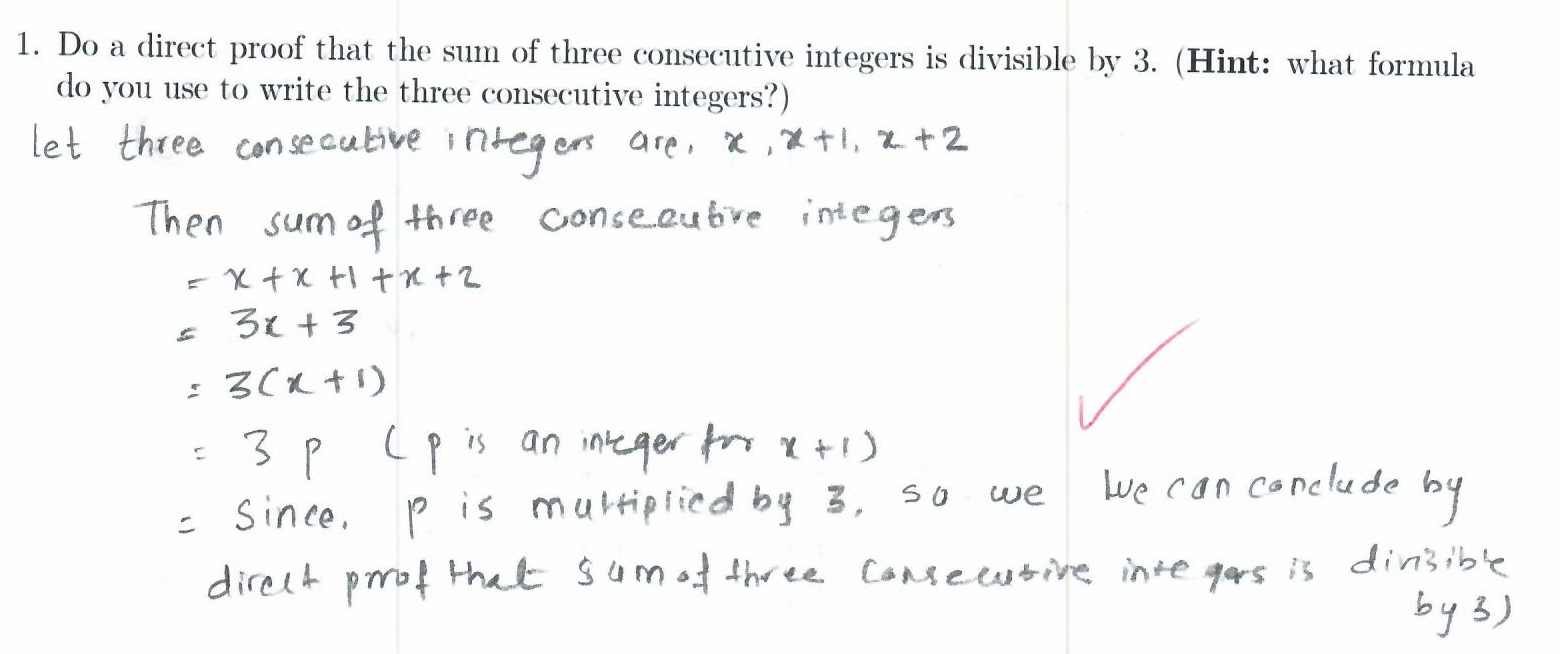 1. Do a direct proof that the sum of three consecutive integers is divisible by 3. (Hint: what formula
do you use to write the three consecutive integers?)
let three consecutive integers are, x, x+1, x+2
Then sum of three consecutive integers
= x + x +1 + x +2
= 3x + 3
= 3(x+1)
= 3p (p is an integer for x+1)
= Since, p is multiplied by 3, so we we can conclude by
direct proof that sum of three consecutive integers is divisible
by 3)